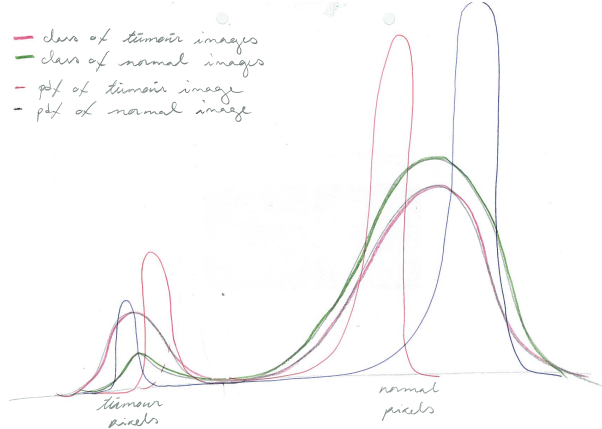 class of tumour images
class of normal images
pdf of tumour image
pdf of normal image
tumour
pixels
normal
pixels